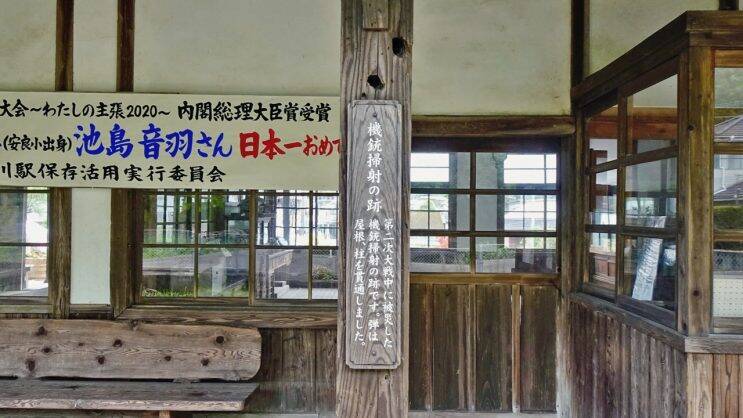 大会～わたしの主張2020～ 内閣総理大臣賞受賞
(安良小出身)池島音羽さん 日本一おめで
川駅保存活用実行委員会
機銃掃射の跡
第二次大戦中に被災した
機銃掃射の跡です。弾は
屋根、柱を貫通しました。